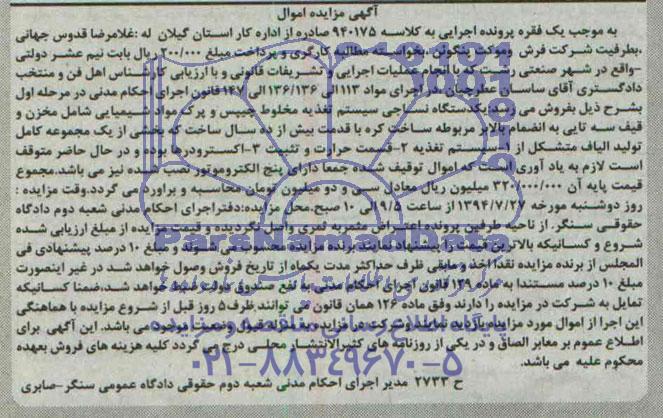 آگهی مزایده اموال
به موجب یک فقره پرونده اجرایی به کلاسه ۹۴۰۱۷۵ صادره از اداره کار استان گیلان له :غلامرضا قدوس جهانی
،بطرفیت شرکت فرش وموکت بخواسته مطالبه کارگری و پرداخت مبلغ ۲۰۰/۰۰۰ ریال بابت نیم عشر دولتی
-واقع در شهر صنعتی رشت که با انجام عملیات اجرایی و تشریفات قانونی و با ارزیابی کارشناس اهل فن و منتخب
دادگستری آقای ساسان عطرچیان ،در اجرای مواد ۱۱۳الی ۱۳۶/۱۳۶الی ۱۴۷ قانون اجرای احکام مدنی در مرحله اول
بشرح ذیل بفروش می رسد:یکدستگاه نساجی سیستم تغذیه مخلوط چیپس و پرک مواد شیمیایی شامل مخزن و
قیف سه تایی به انضمام بالابر مربوطه ساخت کره با قدمت بیش از ده سال ساخت که بخشی از یک مجموعه کامل
تولید الیاف متشکل از ۱-سیستم تغذیه ۲-قسمت حرارت و تثبیت ۳-اکسترودرها بوده و در حال حاضر متوقف
است لازم به یاد آوری است که اموال توقیف شده جمعا دارای پنج الکتروموتور نصب شده نیز می باشد.مجموع
قیمت پایه آن ۳۲۰/۰۰۰/۰۰۰ میلیون ریال معادل سی و دو میلیون تومان محاسبه و براورد می گردد.وقت مزایده :
روز دوشنبه مورخه ۱۳۹۴/۷/۲۷ از ساعت ۹/۵ الی ۱۰ صبح.محل مزایده:دفتراجرای احکام مدنی شعبه دوم دادگاه
حقوقی سنگر. از ناحیه طرفین پرونده اعتراض مثمربه ثمری واصل نگردیده و قیمت مزایده از مبلغ ارزیابی شده
شروع و کسانیکه بالاترین قیمت را پیشنهاد نمایند برنده مزایده محسوب می شوند و مبلغ ۱۰ درصد پیشنهادی فی
المجلس از برنده مزایده نقدا اخذ و مابقی ظرف حداکثر مدت یکماه از تاریخ فروش وصول خواهد شد در غیر اینصورت
مبلغ ۱۰ درصد مستندا به ماده ۱۲۹ قانون اجرای احکام مدنی به نفع صندوق دولت ضبط خواهد شد،ضمنا کسانیکه
تمایل به شرکت در مزایده را دارند وفق ماده ۱۲۶ همان قانون می توانند ظرف۵ روز قبل از شروع مزایده با هماهنگی
این اجرا از اموال مورد مزایده بازدید نمایند وشرکت در مزایده به منزله قبول وضعیت موجود می باشد. این آگهی برای
اطلاع عموم بر معابر الصاق و در یکی از روزنامه های کثیرالانتشار محلی درج می گردد کلیه هزینه های فروش بعهده
محکوم علیه می باشد.
ح ۲۷۳۳ مدیر اجرای احکام مدنی شعبه دوم حقوقی دادگاه عمومی سنگر-صابری
ParsNamadData
پایگاه اطلاع رسانی
۰۲۱-۸۸۳۴۹۶۷۰-۵